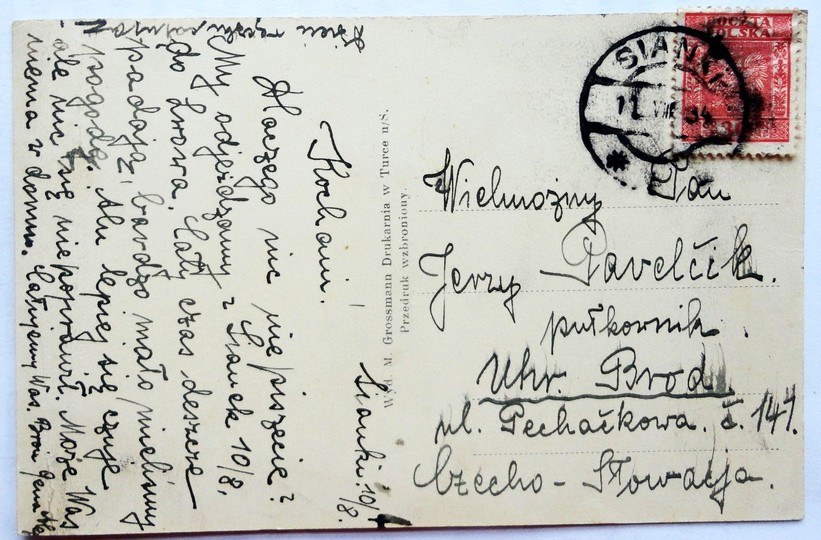 Dzieci rączki całują
Sianki 10/8.
Kochani!
Dlaczego nic nie piszecie?
My odjeżdżamy z Sianek 10/8.
do Lwowa. Cały czas deszcze
padają, bardzo mało mieliśmy
pogody. Ala lepiej się czuje
ale nic się nie poprawił. Może Was
niema w domu. Całujemy Was.
Wyd. M. Grossmann Drukarnia w Turce n/S.
Przedruk wzbroniony.
POCZTA
POLSKA
SIANKI
Wielmożny Pan
Jerzy Pavelčik.
pułkownik.
Uhr. Brod
ul. Pechačkowa. č. 147.
Czecho-Słowacja.